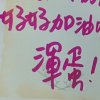 好好加油
渾蛋!